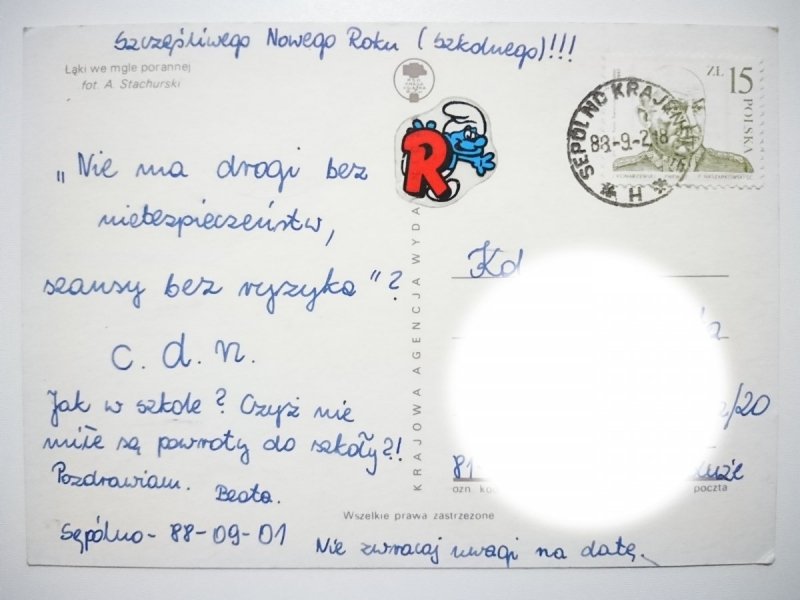 Szczęśliwego Nowego Roku (szkolnego)!!!
Łąki we mgle porannej
fot. A. Stachurski
"Nie ma drogi bez
niebezpieczeństw,
szansy bez ryzyka"?
c. d. n.
Jak w szkole? Czyż nie
miłe są powroty do szkoły?!
Pozdrawiam. Beata.
Sępólno - 88-09-01
Nie zwracaj uwagi na datę.
Wszelkie prawa zastrzeżone
KRAJOWA AGENCJA WYDA
R
ZŁ 15
POLSKA
SĘPÓLNO KRAJEŃSKIE
88-9-2.18
* H *
Kd
/20
81-
ozn. ko
poczta